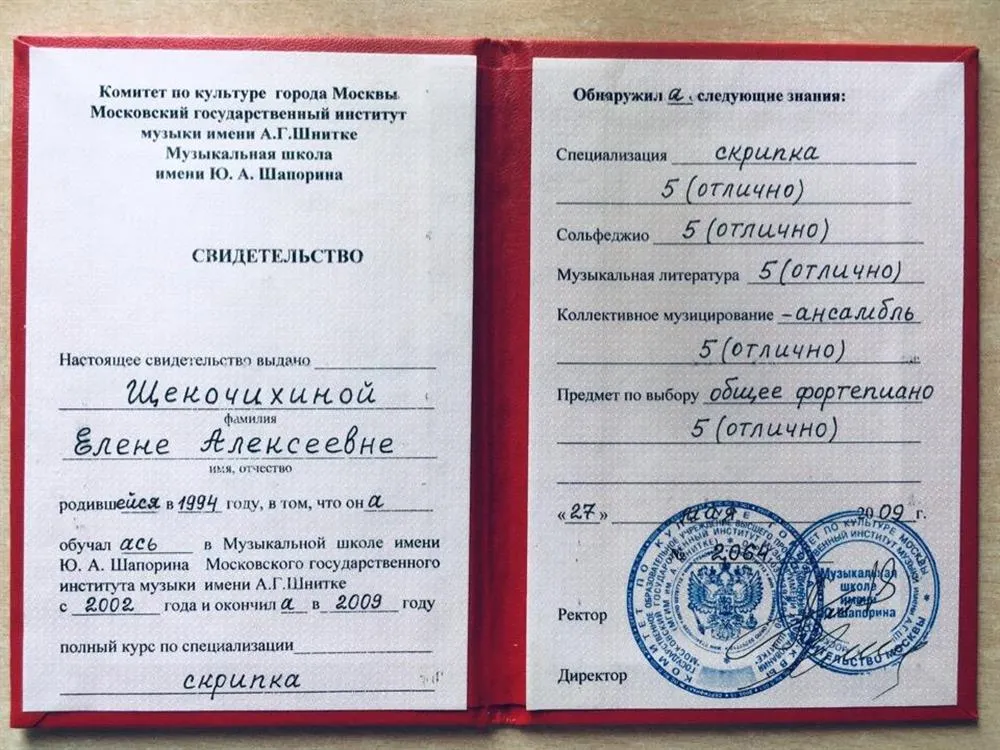 Комитет по культуре города Москвы
Московский государственный институт
музыки имени А.Г.Шнитке
Музыкальная школа
имени Ю. А. Шапорина
СВИДЕТЕЛЬСТВО
Настоящее свидетельство выдано
Щекочихиной
фамилия
Елене Алексеевне
имя, отчество
родившейся в 1994 году, в том, что он а
обучал ась в Музыкальной школе имени
Ю. А. Шапорина Московского государственного
института музыки имени А.Г.Шнитке
с 2002 года и окончил а в 2009 году
полный курс по специализации
скрипка
Обнаружил а следующие знания:
Специализация скрипка
5 (отлично)
Сольфеджио 5 (отлично)
Музыкальная литература 5 (отлично)
Коллективное музицирование - ансамбль
5 (отлично)
Предмет по выбору общее фортепиано
5 (отлично)
« 27 » мая 2009 г.
№ 2064
Ректор
Директор
Музыкальная
школа
имени
Шапорина